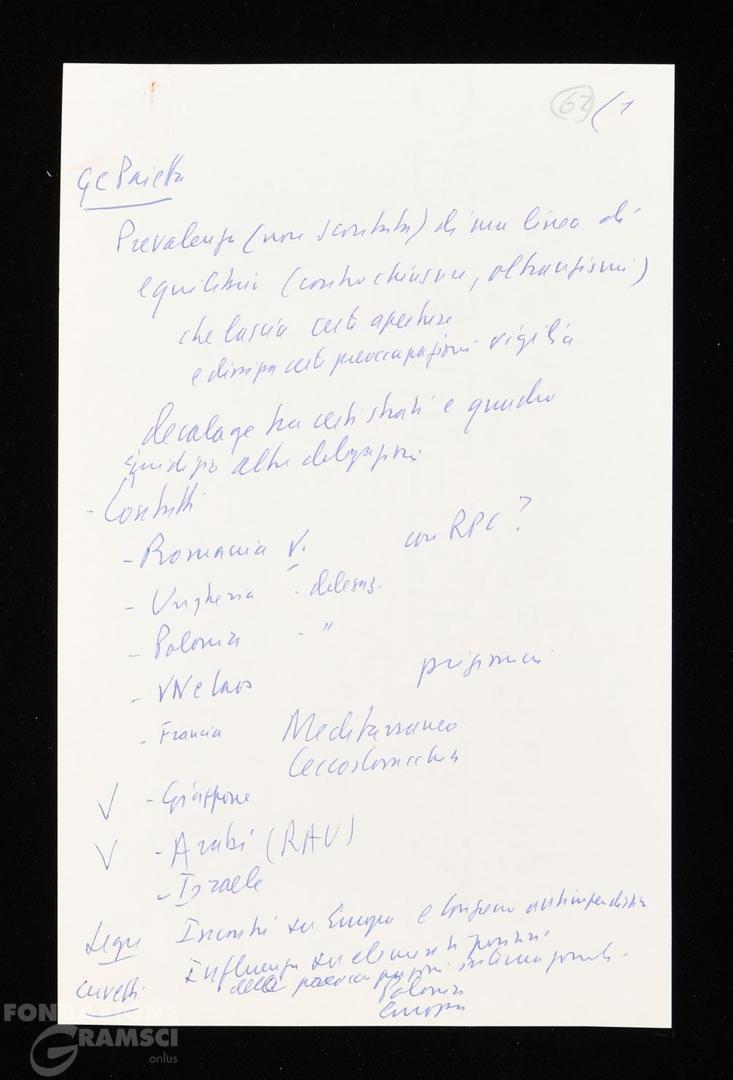 62 (1
GC Pajetta
Prevalenza (non scontata) di una linea di
equilibrio (contro chiusure, oltranzismi)
che lascia certe aperture
e dissipa certe preoccupazioni vigilia
decalage tra certi strati e quadro
Giudizio altre delegazioni
- Contatti
- Romania V. con RPC?
- Ungheria - delegaz.
- Polonia - "
- VN e Laos prigionieri
- Francia Mediterraneo
Cecoslovacchia
V - Giappone
V - Arabi (RAU)
- Israele
Segre Incontri su Europa e Congresso antimperialista
Cervetti Influenza su elementi
delle preoccupazioni internazionali
Polonia
Europa
FONDAZIONE
GRAMSCI
onlus